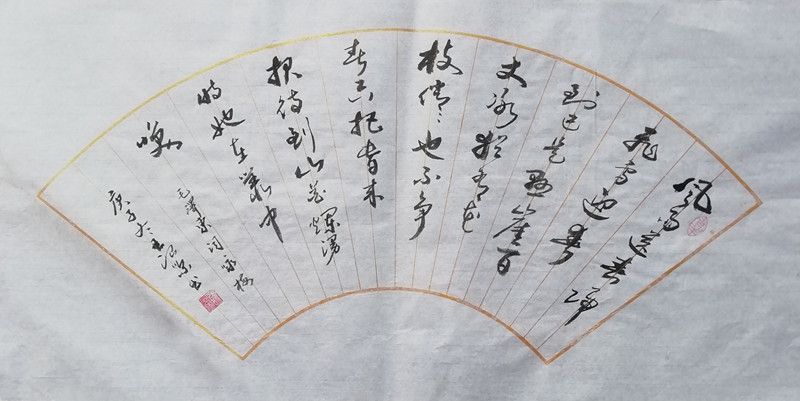 风雨送春归
飛雪迎春
到已是悬崖百
丈冰犹有花
枝俏〻也不争
春只把春来
报待到山花烂漫
时她在叢中
笑
毛泽东词咏梅
庚子冬王书